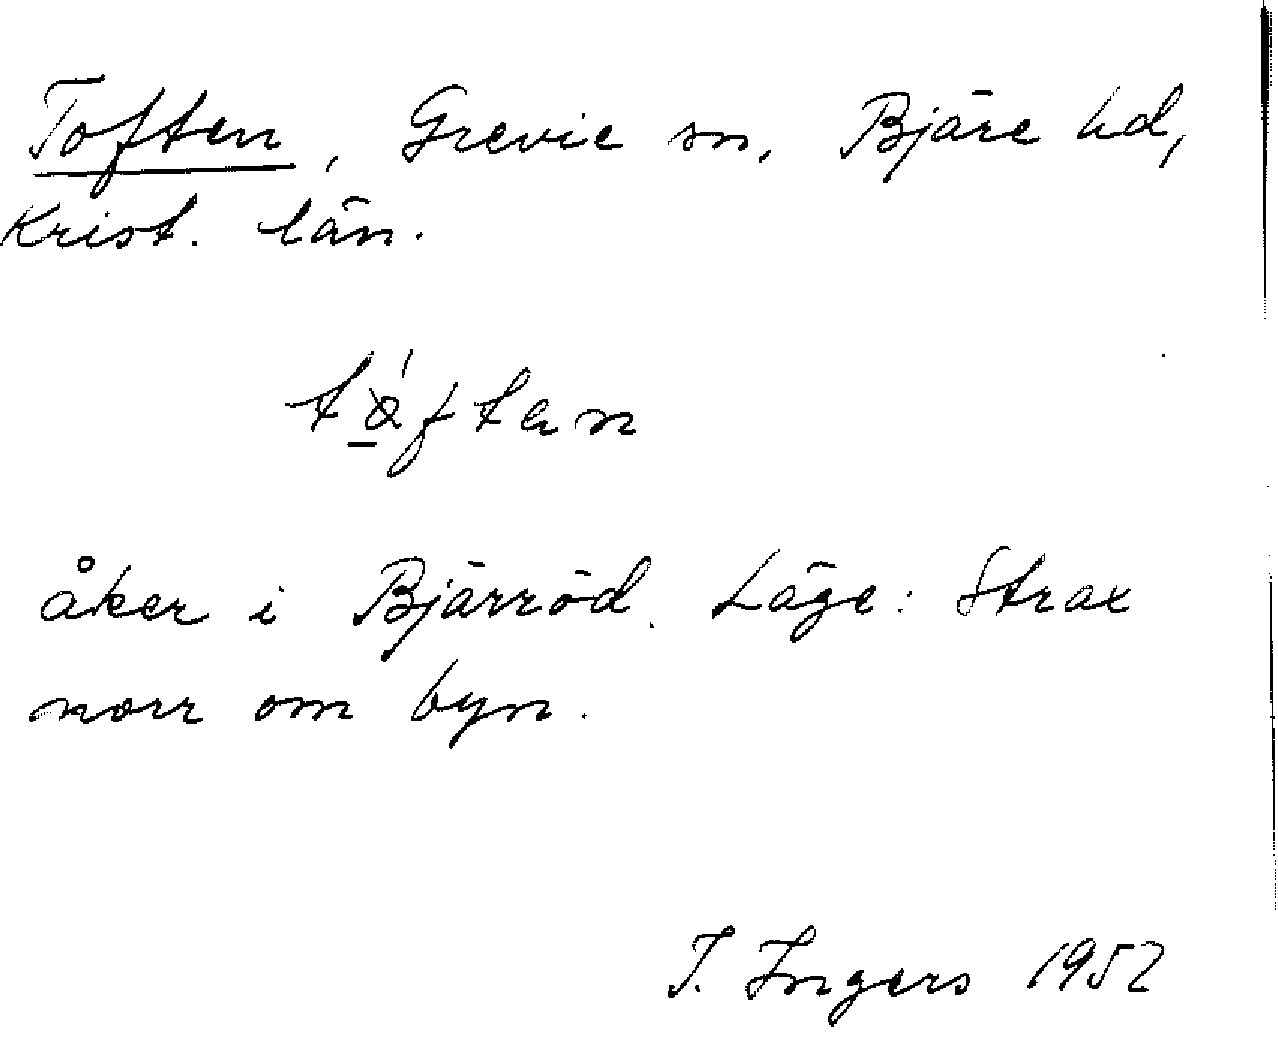 Toften, Grevie sn, Bjäre hd,
Krist. län.
åker i Bjärröd. Läge: Strax
norr om byn.
I. Ingers 1952